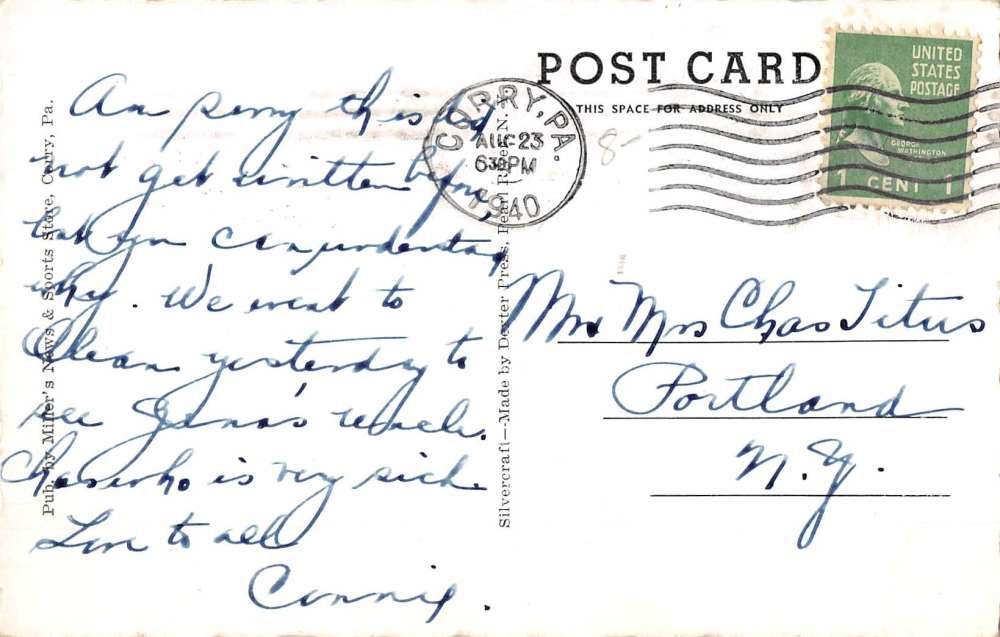 POST CARD
THIS SPACE FOR ADDRESS ONLY
CORRY, PA.
AUG 23
630PM
1940
8-
UNITED
STATES
POSTAGE
GEORGE
WASHINGTON
1 CENT 1
Am sorry this did
not get written before,
but you can understand
why. We went to
Olean yesterday to
see uncle.
Chas who is very sick.
Love to all
Connie.
Mr Mrs Chas Titus
Portland
N.Y.
Pub. by Miller's News & Sports Store, Corry, Pa.
Silvercraft—Made by Dexter Press, Pearl River, N.